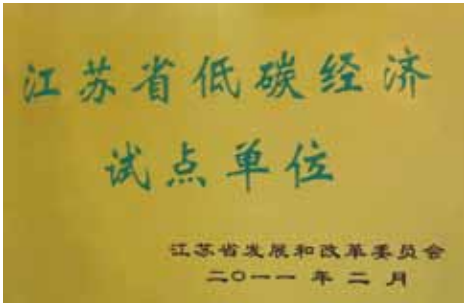 江苏省低碳经济
试点单位
江苏省发展和改革委员会
二〇一一年二月